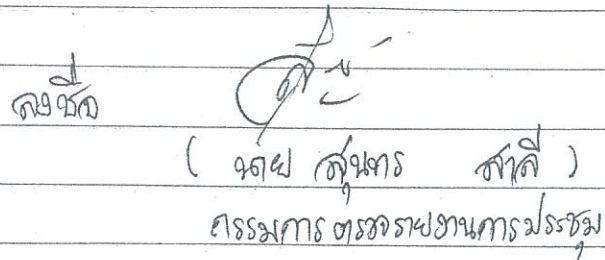 ลงชื่อ
( นาย สุนทร สาลี )
กรรมการตรวจรายงานการประชุม